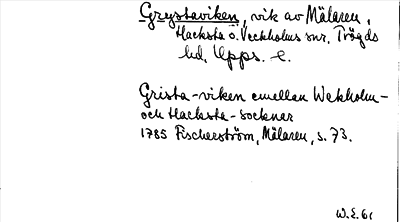 Grystaviken, vik av Mälaren,
Hacksta o. Veckholms snr, Trögds
hd, Upps. l.
Grista-viken emellan Wekholm-
och Hacksta-Socknar
1785 Fischerström, Mälaren, s. 73.
W.E. 61